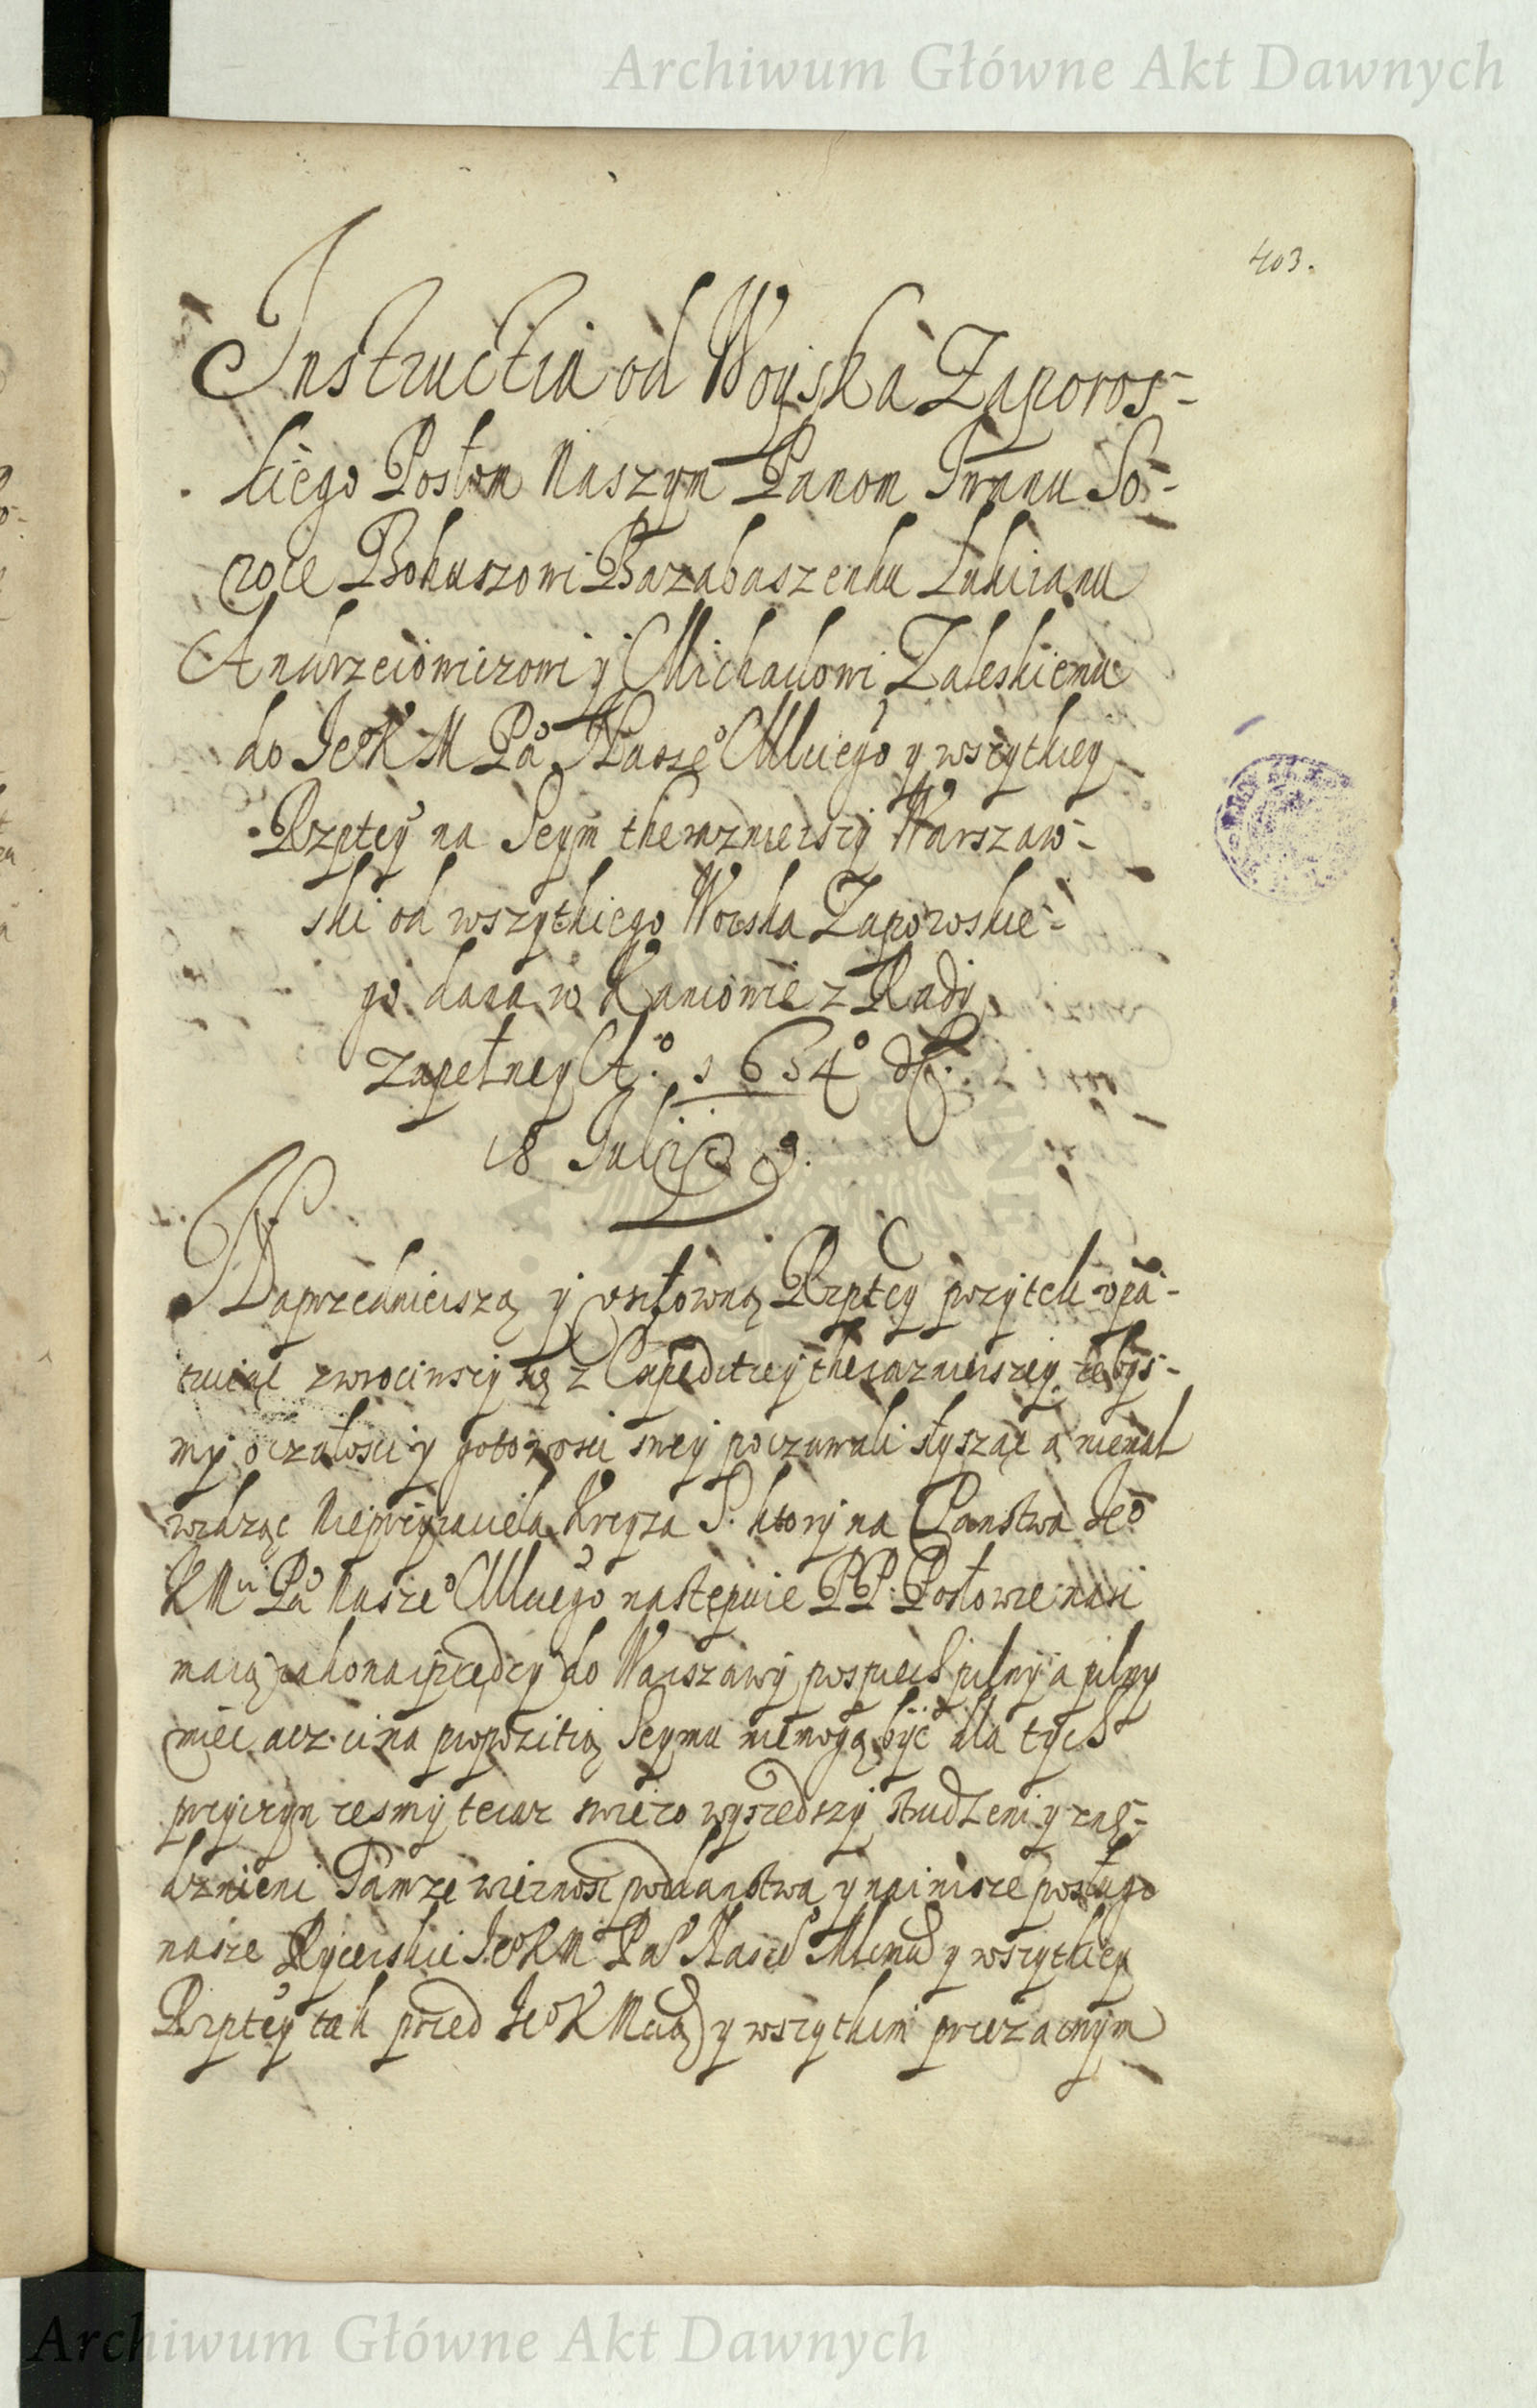 Archiwum Główne Akt Dawnych
403.
Instructia od Woyska Zaporos-
kiego Posłom Naszym Panom Iwanu So-
roce Bohuszowi Barabaszenku Lukianu
Andrzeiowiczowi y Michałowi Zaleskiemu
do Jeo K M Pa Naszeo Młciego y wszytkiey
Rzptey na Seym theraznieiszy Warszaw-
ski od wszytkiego Woiska Zaporoskie-
go dana w Kaniowie z Rady
zapełney Ao 1654o d.
18 Julii
Naprzednieiszą y Rzptey pozytek opa-
truiąc zwrociwszy się z Expeditiey theraznieiszey zebys-
my o czałosci y gotowosci swey poczuwali słysząc a nieral
widząc Nieprzyiaciela Krzyza S. ktory na Panstwa Jeo
K Mci Pa Naszeo Młciego następuie PP. Posłowie nasi
maią iako naiprędzey do Warszawy pospiech pilny a pilny
miec acz ci na propozitią Seymu niemogą być dla tych
przyczyn zesmy teraz swiezo wyszedszy strudzeni y znę-
dznieni Tamze wiernosc poddanstwa y nainisze posługi
nasze Rycerskie Jeo K M Pa Nasze Młcmu y wszytkiey
Rzptey tak przed Jeo K Mcią y wszytkim przezacnym
Archiwum Główne Akt Dawnych